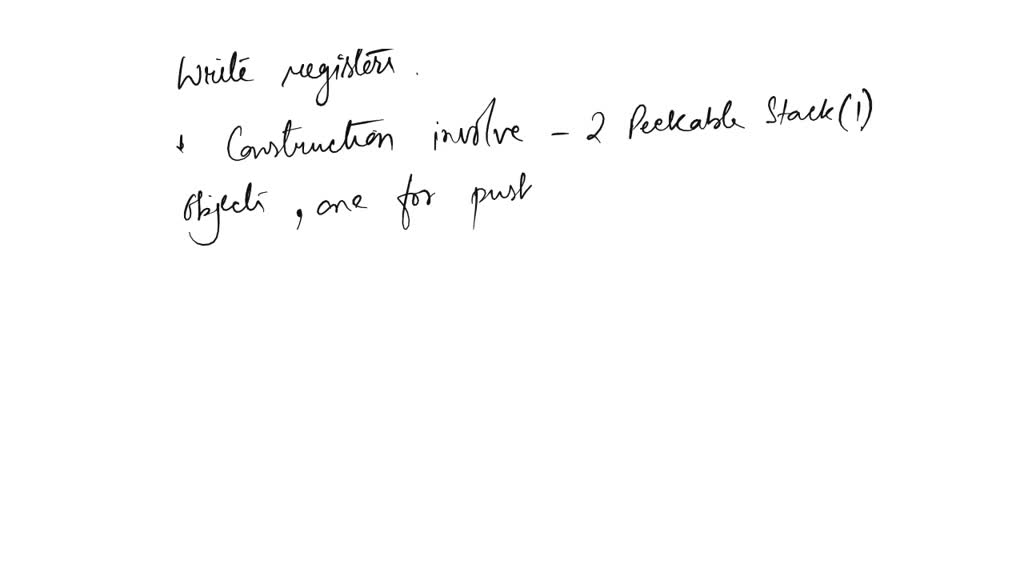 Write registers.
* Construction involve - 2 Peekable Stack(1)
Objects, one for push